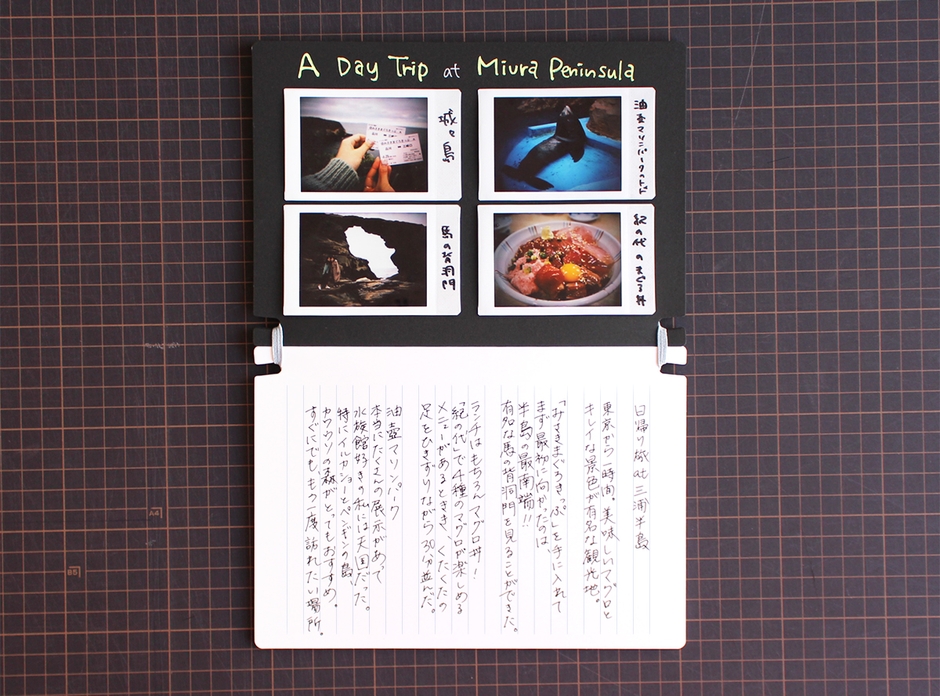 A Day Trip at Miura Peninsula
城ヶ島
油壷マリンパークのトド
馬の背洞門
紀の代のまぐろ丼
日帰り旅at三浦半島
東京から一時間。美味しいマグロと
キレイな景色が有名な観光地。
「みさきまぐろきっぷ」を手に入れて
まず最初に向かったのは、
半島の最南端!!
有名な馬の背洞門を見ることができた。
ランチはもちろんマグロ丼!
「紀の代」で4種のマグロが楽しめる
メニューがあるときき、くたくたの
足をひきずりながら30分並んだ。
油壷マリンパーク
本当にたくさんの展示があって
水族館好きの私には天国だった。
特にイルカショーとペンギンの島、
カワウソの森がとってもおすすめ。
すぐにでも、もう一度訪れたい場所。
A4
B5